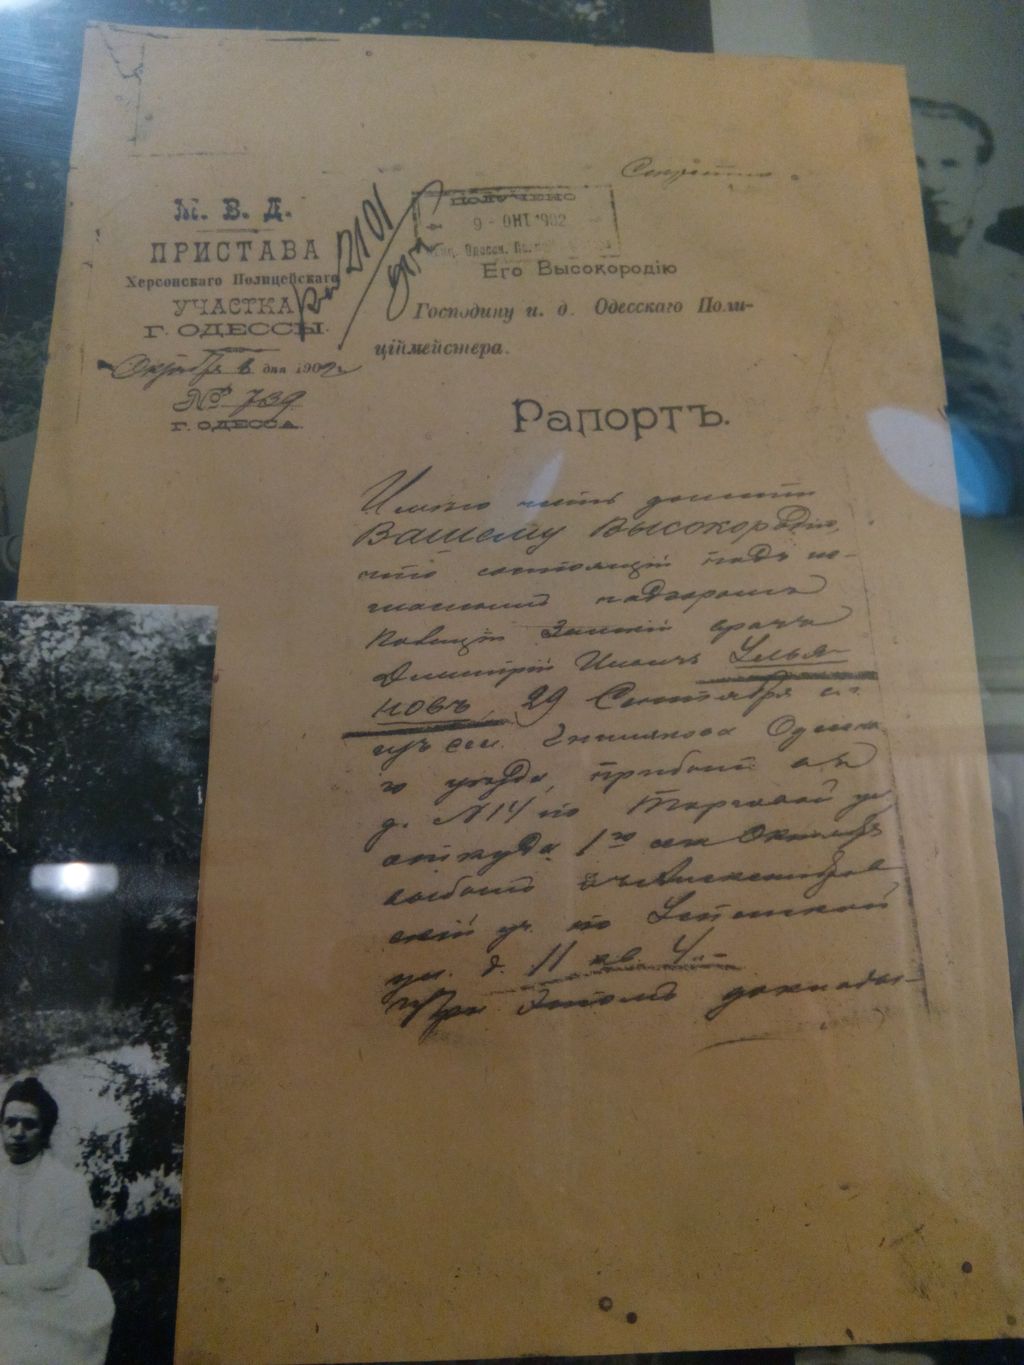 Секретно.
М. В. Д.
ПРИСТАВА
Херсонскаго Полицейскаго
УЧАСТКА
Г. ОДЕССЫ.
Октября 6 дня 1902 г.
№ 739
Г. ОДЕССА.
2101
ПОЛУЧЕНО
9 - ОКТ 1902
Его Высокородію
Господину и. д. Одесскаго Поли-
ціймейстера.
Рапортъ.
Имѣю честь донести
Вашему Высокородію,
что состоящій подъ не-
гласнымъ надзоромъ
полиціи Земскій врачъ
Дмитрій Ильичъ Улья-
новъ, 29 Сентября с.г.
изъ сел. Одесска-
го уѣзда, прибылъ въ
д. № 14 по Торговой ул.
откуда 1го сего Октября
выбылъ въ Александров
скій уч. по Успенской
ул. д. 11 кв. 4.
При этомъ доклады-